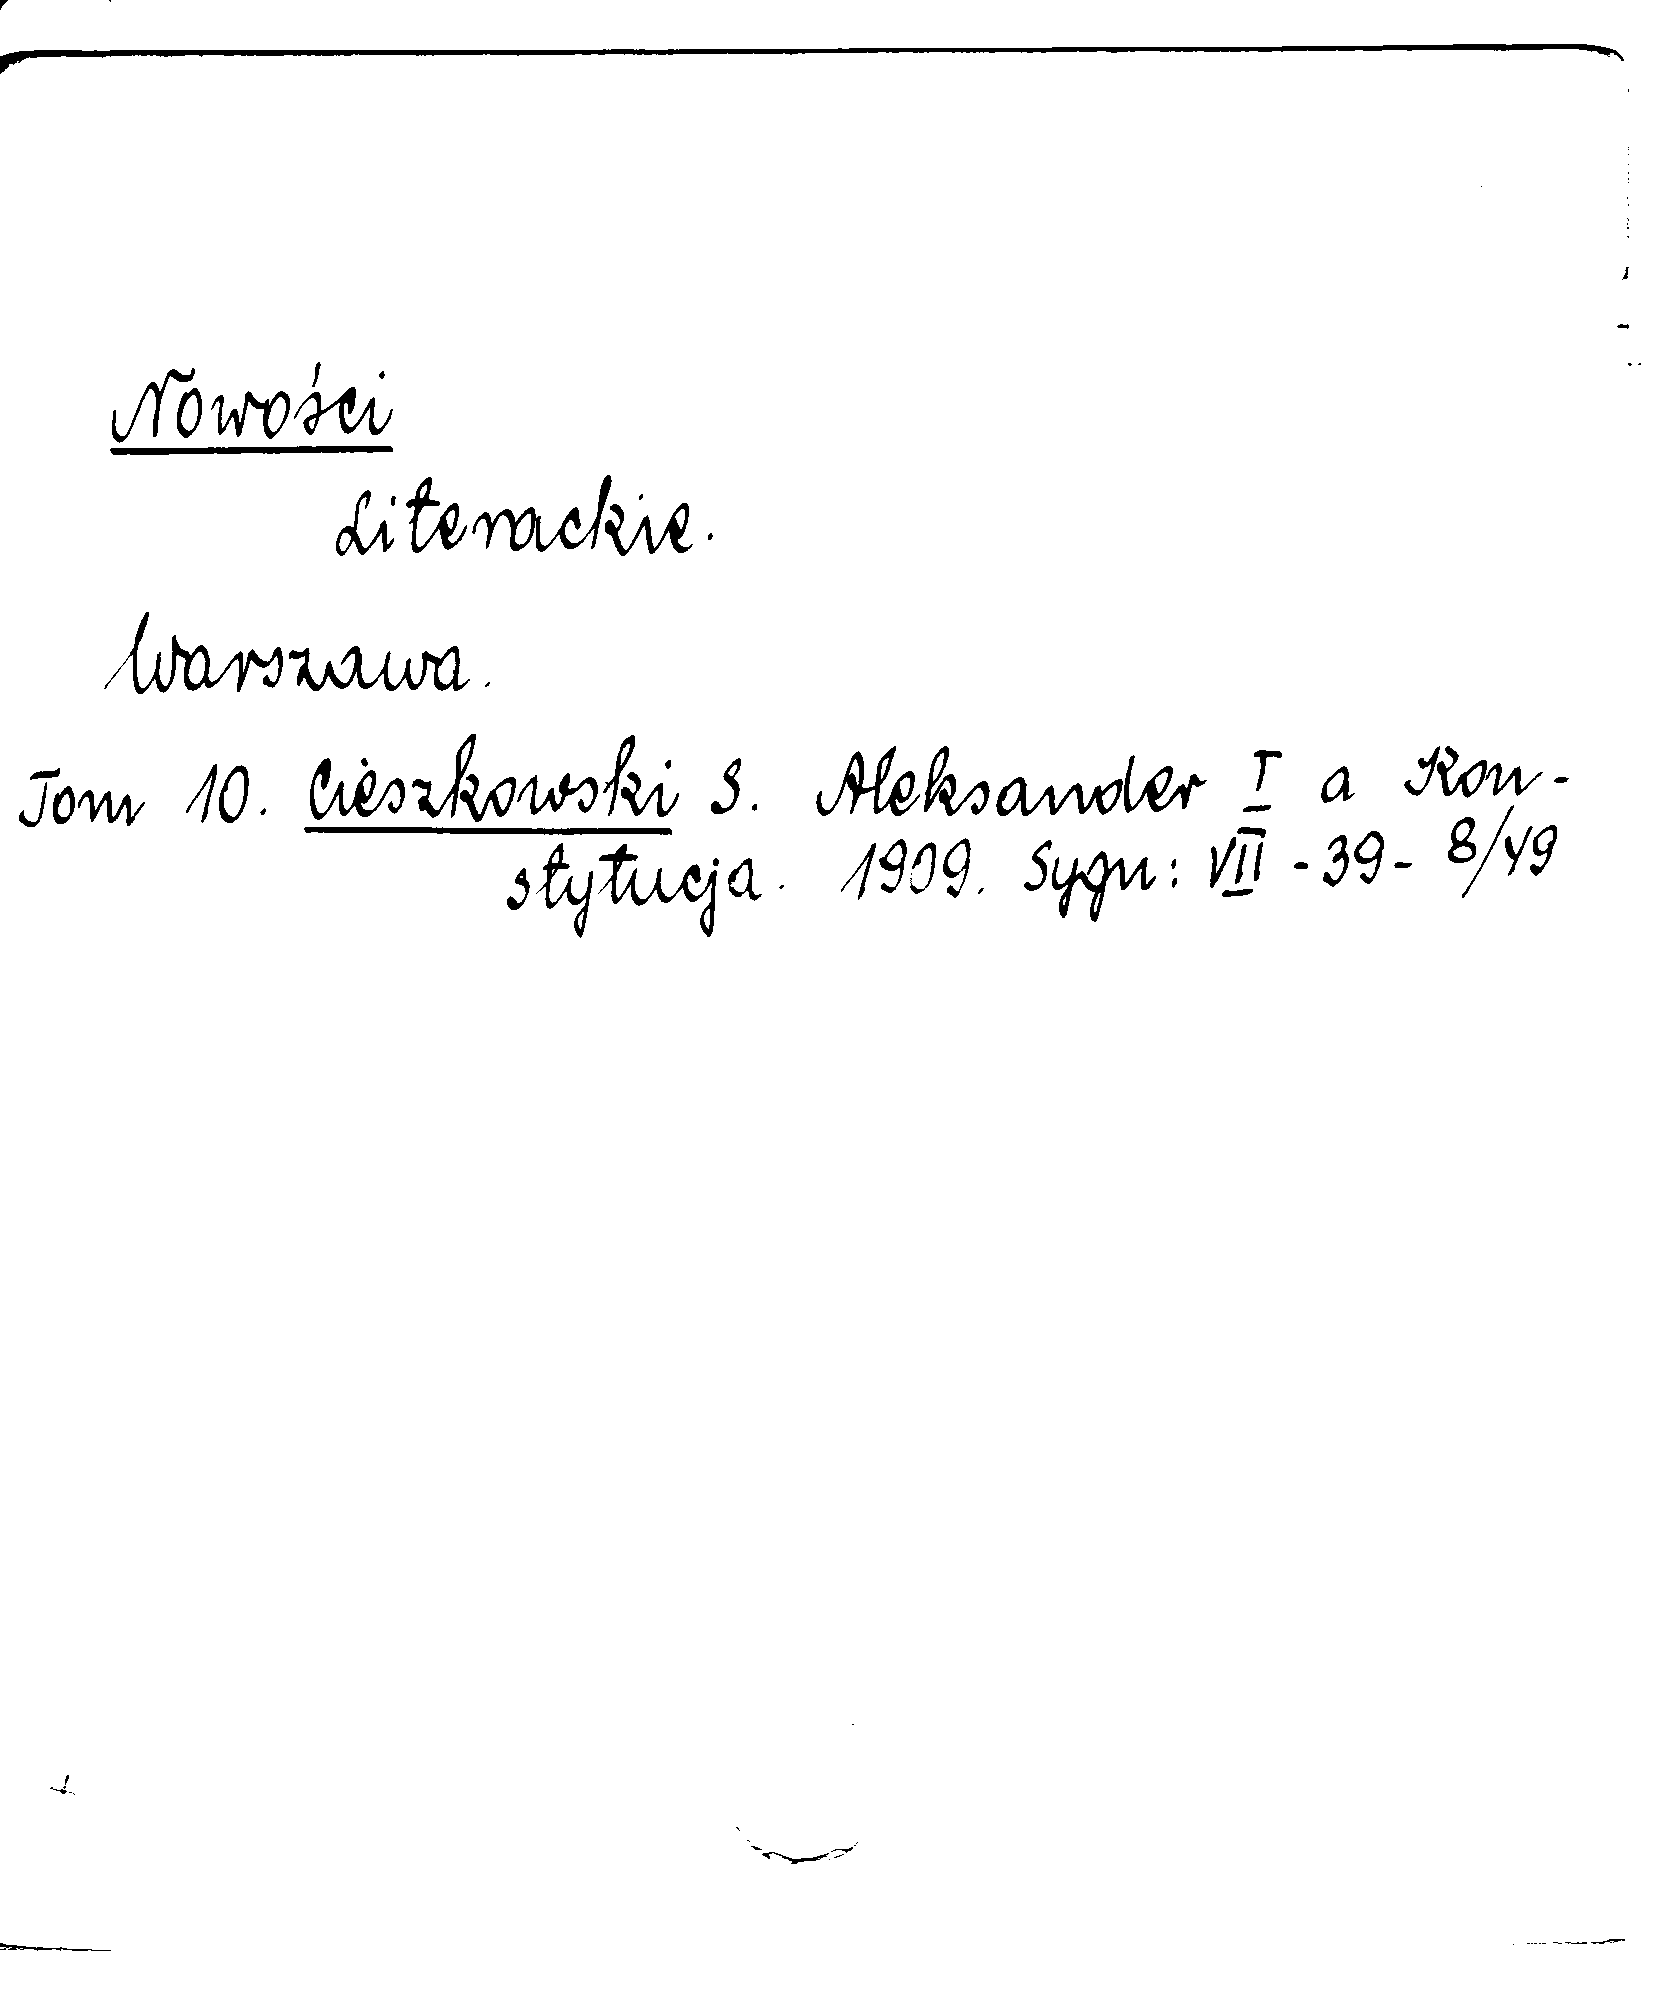 Nowości
Literackie.
Warszawa.
Tom 10. Cieszkowski S. Aleksander I a Kon-
stytucja. 1909. Sygn: VII - 39 - 8/49